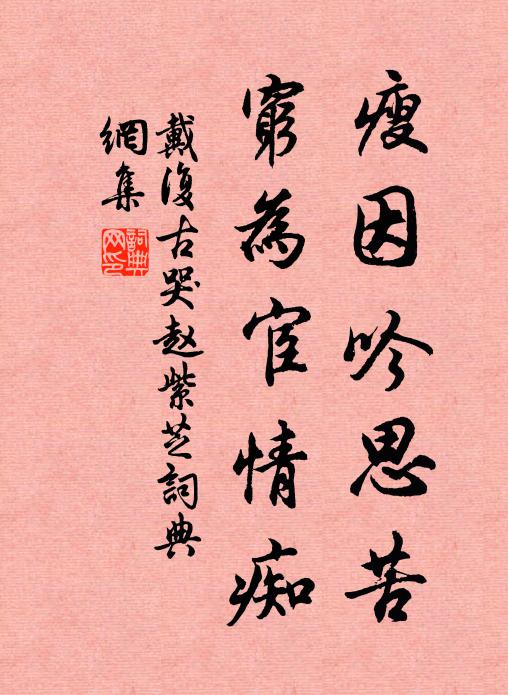 瘦因吟思苦
窮為宦情痴
戴復古哭赵紫芝詞典
網集
詞典
网印